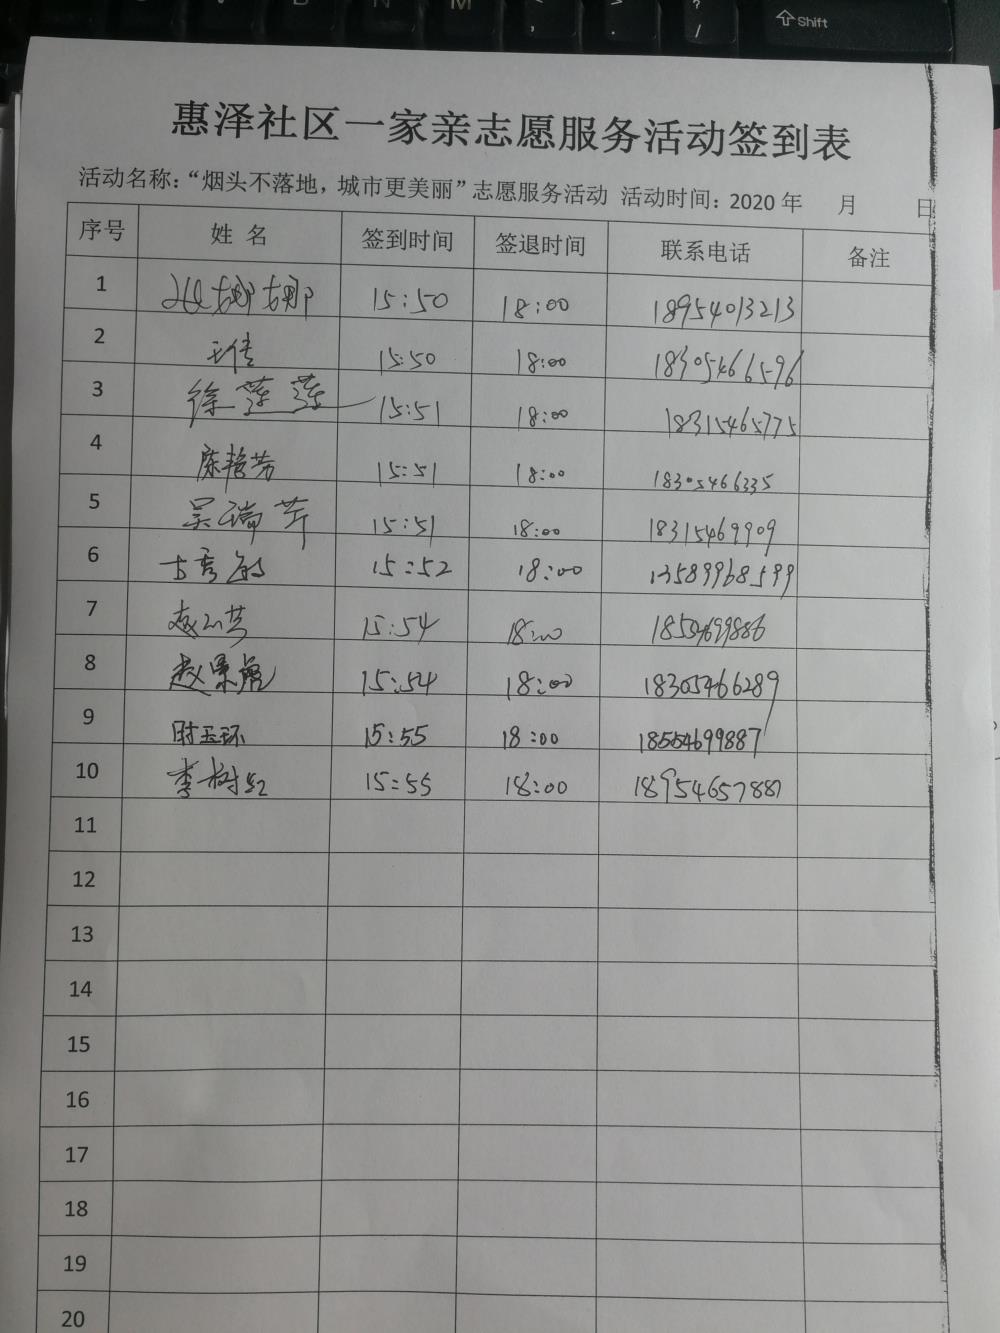 N M < , > . ? / Shift
惠泽社区一家亲志愿服务活动签到表
活动名称：“烟头不落地，城市更美丽”志愿服务活动 活动时间：2020 年 月 日
序号 姓 名 签到时间 签退时间 联系电话 备注
1 娜娜 15:50 18:00 18954013213
2 15:50 18:00 18305466596
3 徐莲莲 15:51 18:00 18315465775
4 陈艳芳 15:51 18:00 18305466335
5 吴瑞芹 15:51 18:00 18315469909
6 15:52 18:00 13589968599
7 15:54 18:00 18554699886
8 赵景虎 15:54 18:00 18305466289
9 时玉环 15:55 18:00 18554699887
10 李树红 15:55 18:00 18954657887
11
12
13
14
15
16
17
18
19
20